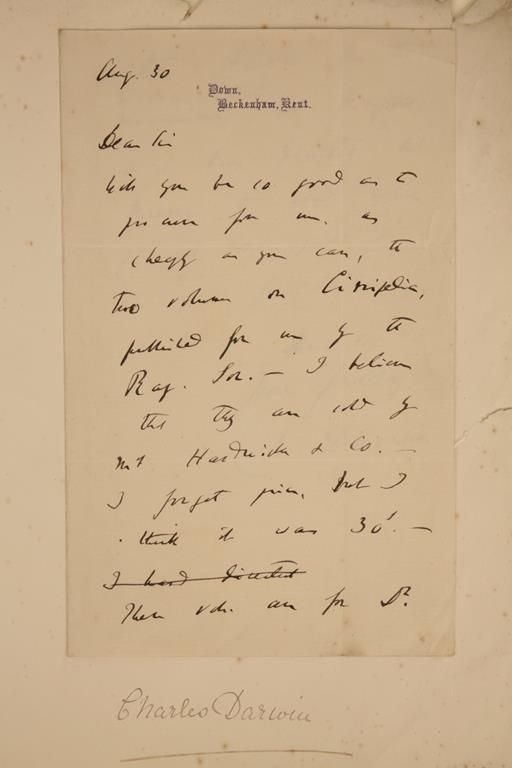 Aug. 30
Down,
Beckenham, Kent.
Dear Sir
Will you be so good as to
procure for me, as
cheaply as you can, the
two volumes on Cirripedia,
published for me by the
Ray. Soc. — I believe
that they are sold by
Mr Hardwicke & Co. —
I forget price, but I
think it was 30s. —
I had directed
These vols. are for Dr.
Charles Darwin